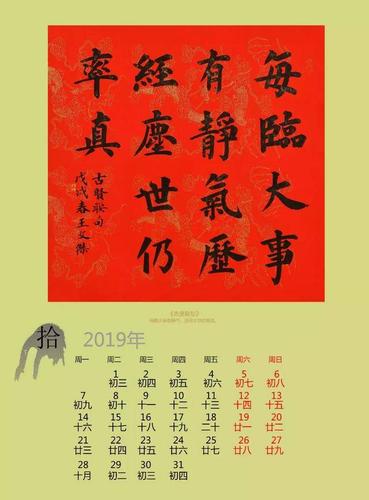 每臨大事
有靜氣歷
經塵世仍
率真
古賢聯句
戊戌春王文傑
拾
2019年
周一 周二 周三 周四 周五 周六 周日
1 2 3 4 5 6
初三 初四 初五 初六 初七 初八
7 8 9 10 11 12 13
初九 初十 十一 十二 十三 十四 十五
14 15 16 17 18 19 20
十六 十七 十八 十九 二十 廿一 廿二
21 22 23 24 25 26 27
廿三 廿四 廿五 廿六 廿七 廿八 廿九
28 29 30 31
十月 初二 初三 初四